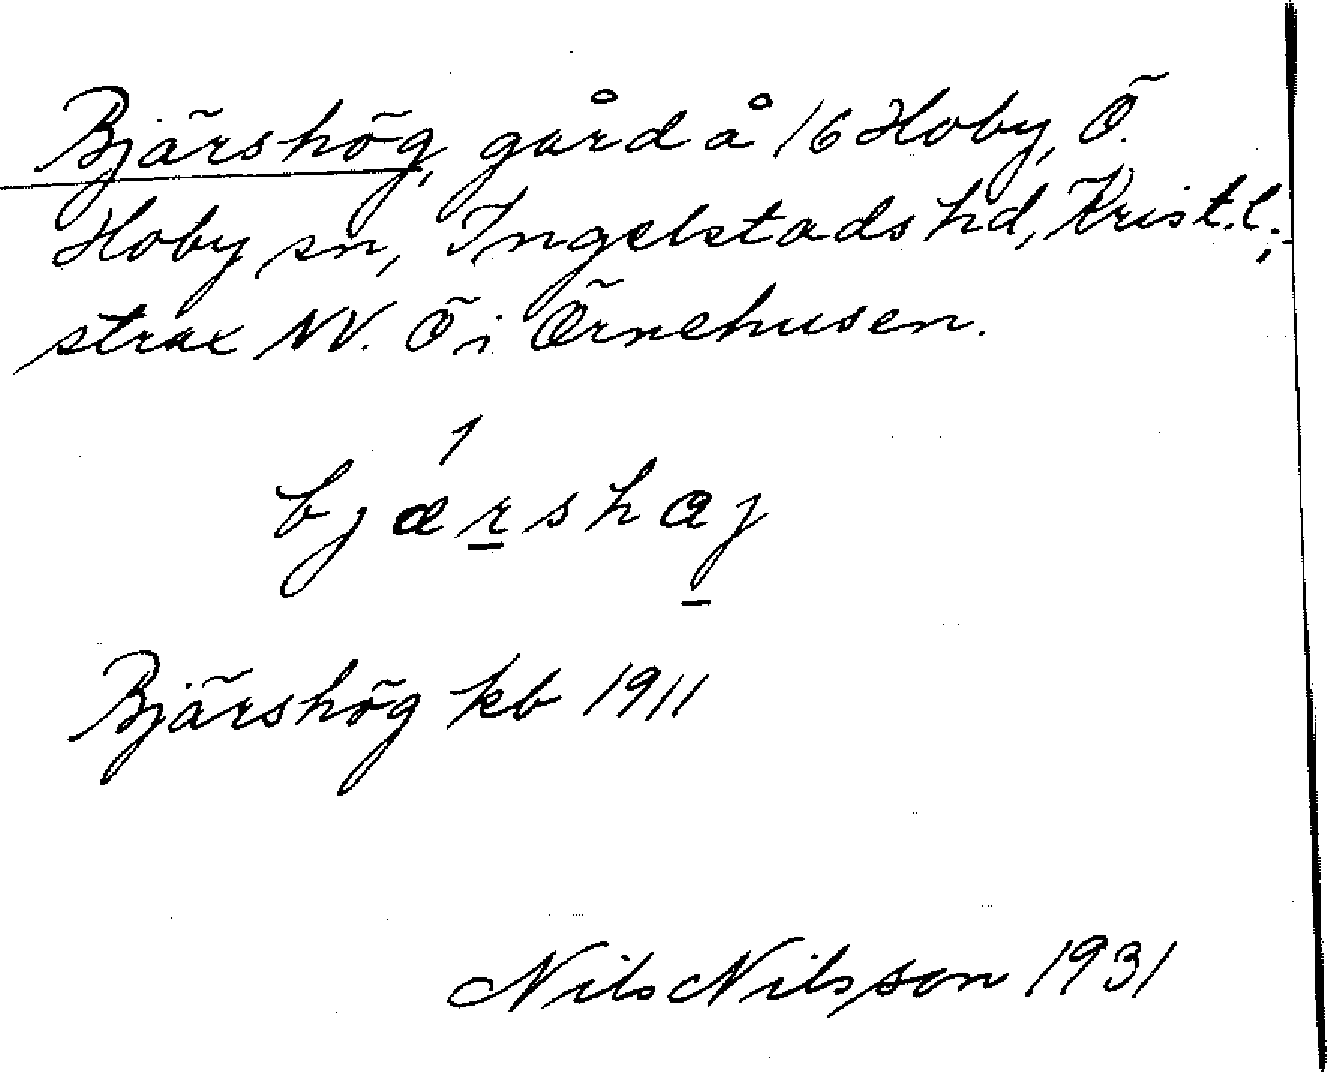 Bjärshög, gård å 16 Hoby, Ö.
Hoby sn, Ingelstads hd, Krist.l.;
strax NV. Ö i Örnehusen.
bjæ̍r̲shøj̲
Bjärshög kb 1911
Nils Nilsson 1931